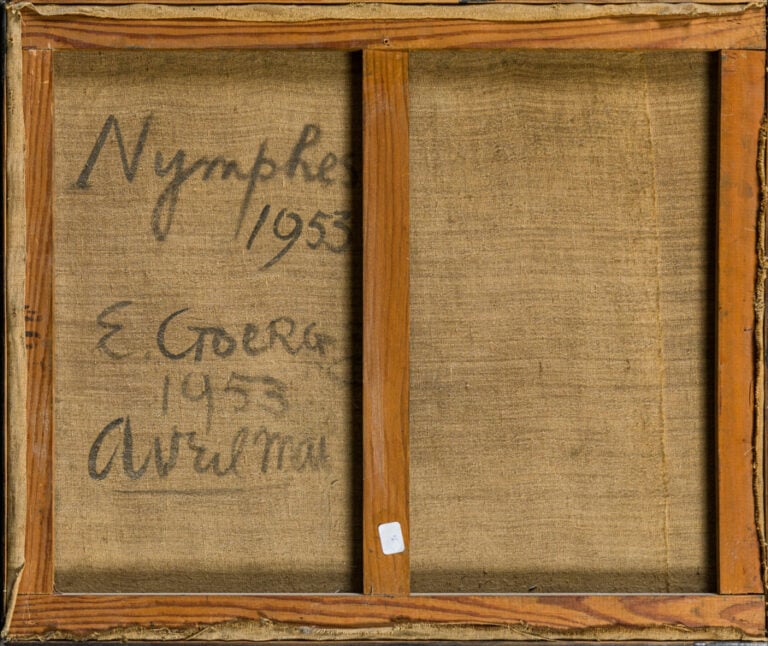 Nymphes
1953
E. GOERG
1953
Avril mai